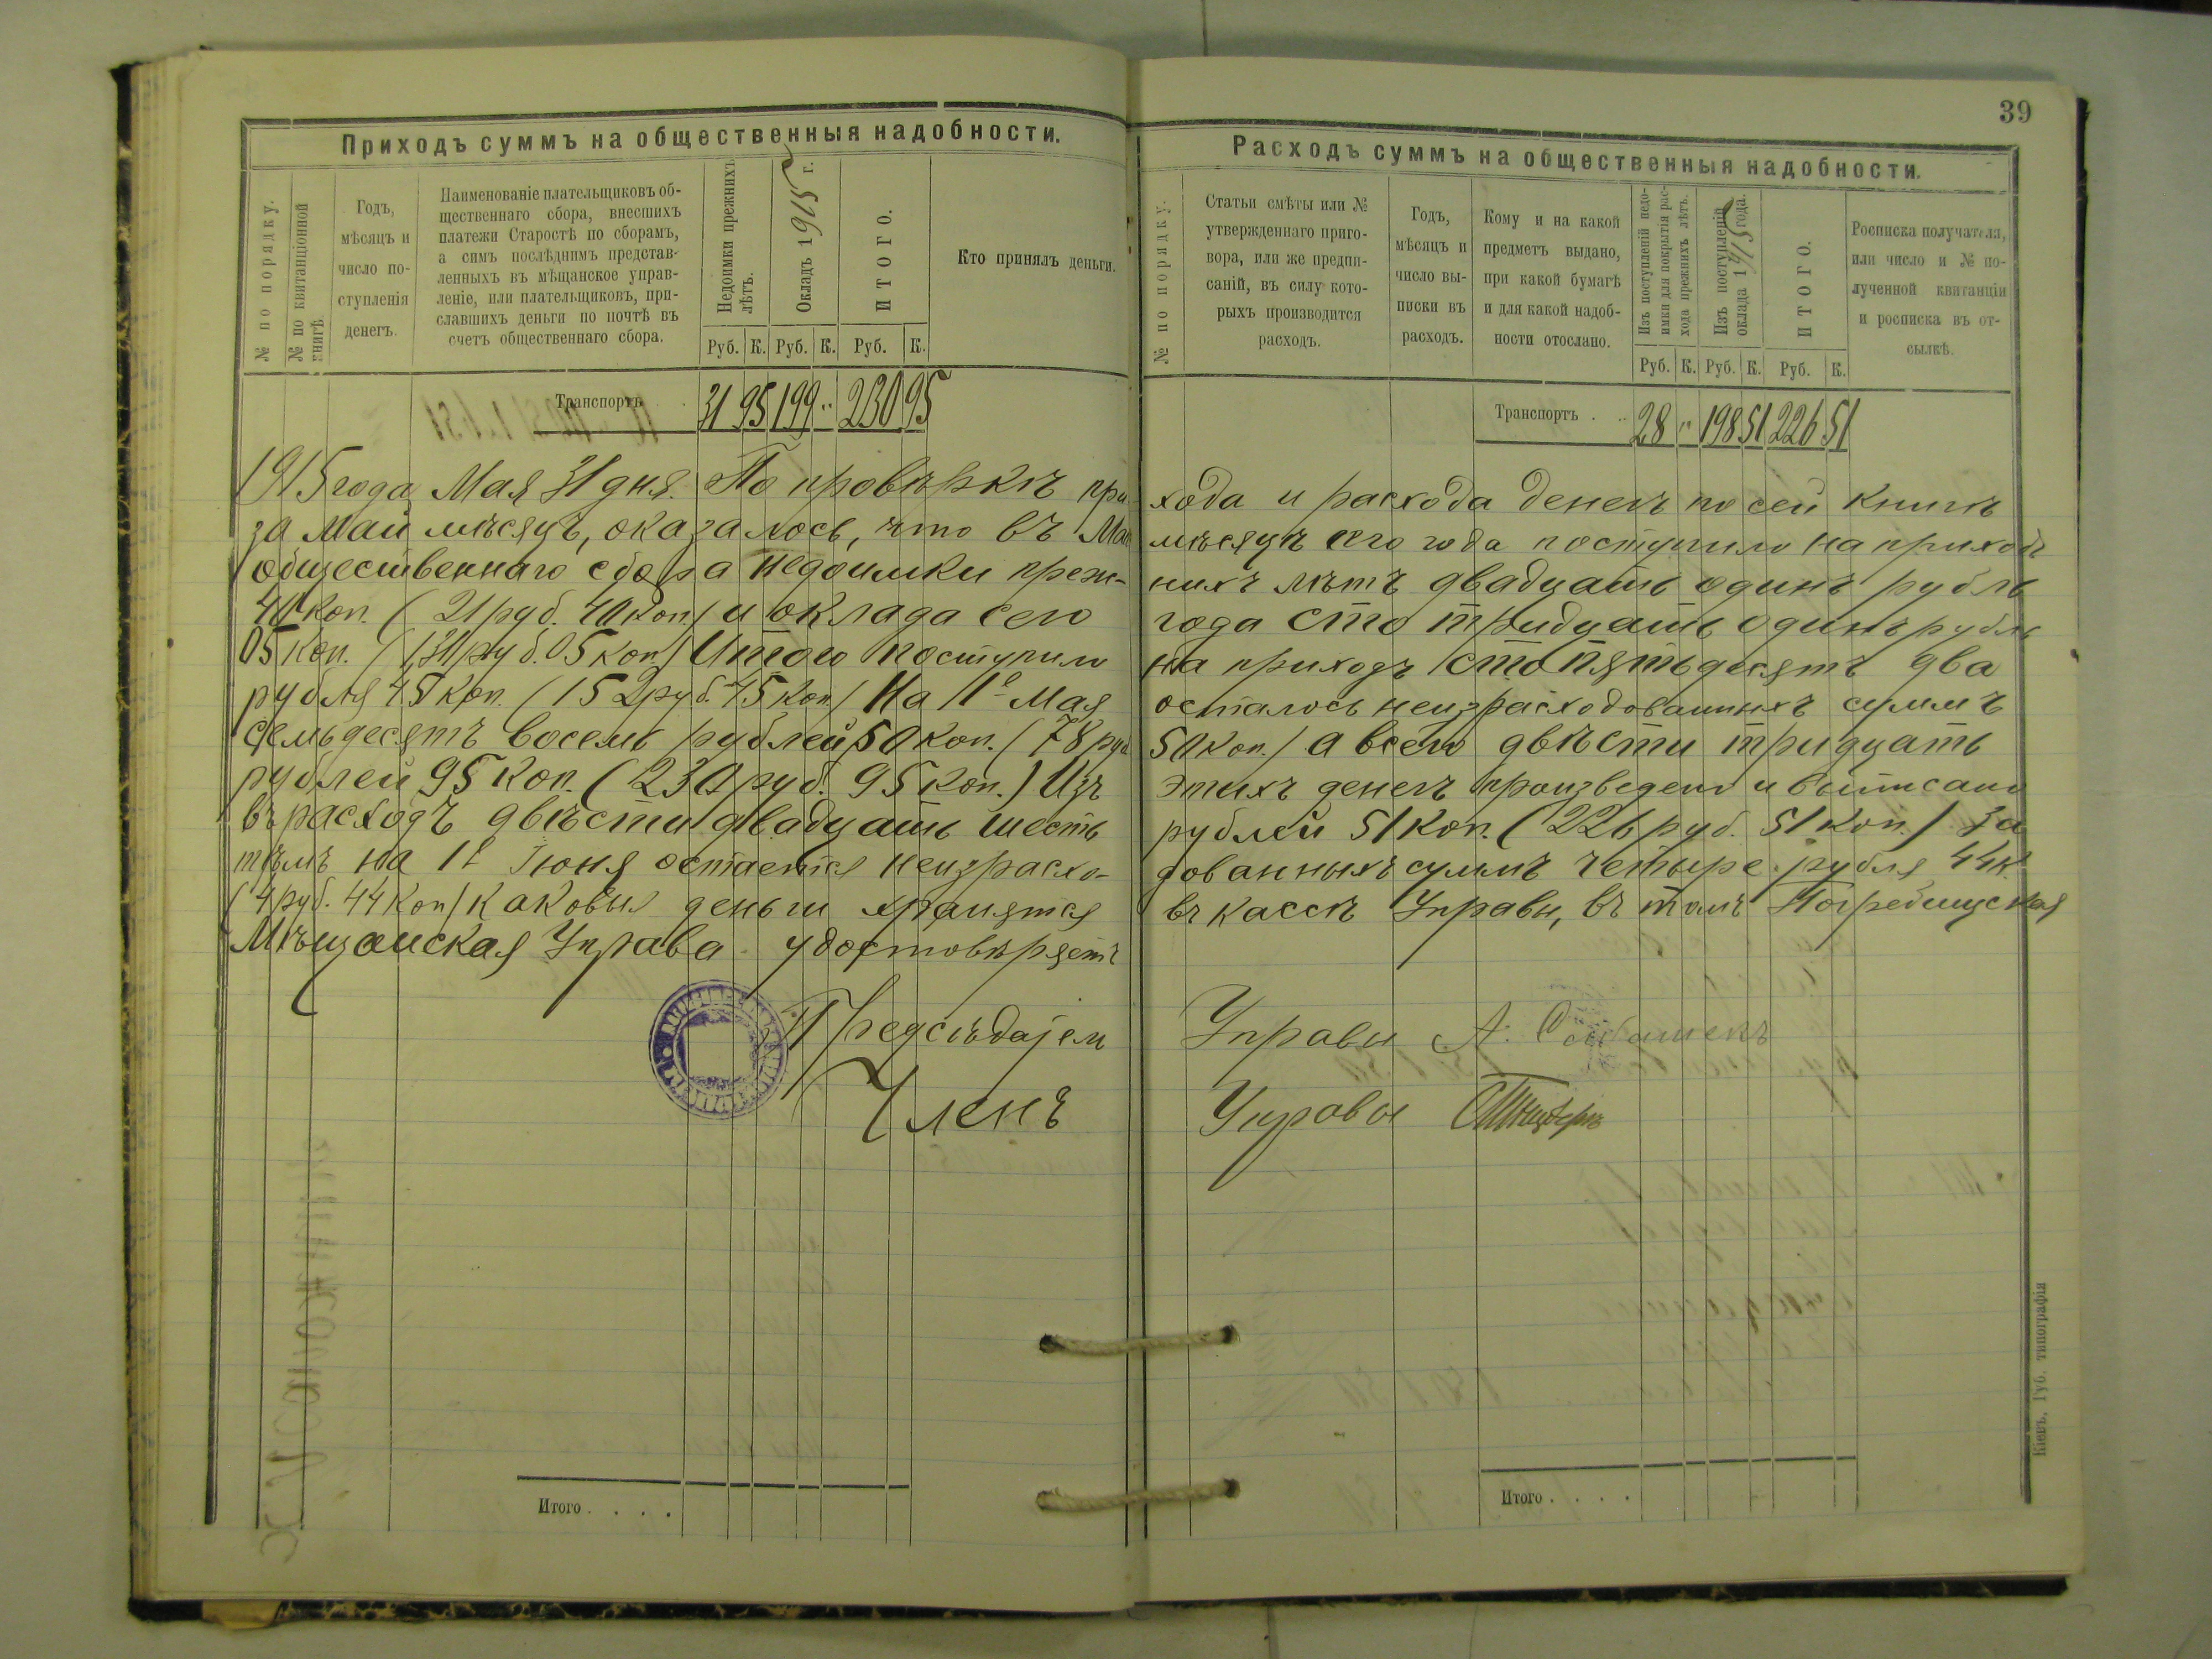 39
Приходъ суммъ на общественныя надобности.
№ по порядку.
№ по квитанціонной книгѣ
Годъ,
мѣсяцъ и
число по-
ступленія
денегъ.
Наименованіе плательщиковъ об-
щественнаго сбора, внесшихъ
платежи Старостѣ по сборамъ,
а симъ послѣднимъ представ-
ленныхъ въ мѣщанское управ-
леніе, или плательщиковъ, при-
славшихъ деньги по почтѣ въ
счетъ общественнаго сбора.
Недоимки прежнихъ
лѣтъ.
Окладъ 1915 г.
ИТОГО.
Кто принялъ деньги.
Руб. К. Руб. К. Руб. К.
Транспортъ 31 95 199 „ 230 95
Расходъ суммъ на общественныя надобности.
№ по порядку.
Статьи смѣты или №
утвержденнаго приго-
вора, или же предпи-
саній, въ силу кото-
рыхъ производится
расходъ.
Годъ,
мѣсяцъ и
число вы-
писки въ
расходъ.
Кому и на какой
предметъ выдано,
при какой бумагѣ
и для какой надоб-
ности отослано.
Изъ поступленій недо-
имки для покрытія рас-
хода прежнихъ лѣтъ.
Изъ поступленій
оклада 1915 года.
ИТОГО.
Росписка получателя,
или число и № по-
лученной квитанціи
и росписка въ от-
сылкѣ.
Руб. К. Руб. К. Руб. К.
Транспортъ . . 28 „ 198 51 226 51
1915 года Мая 31 дня. По провѣркѣ при- хода и расхода денегъ по сей книгѣ
за Май мѣсяцъ, оказалось, что въ Маѣ мѣсяцѣ сего года поступило на приходъ
общественнаго сбора недоимки преж- нихъ лѣтъ двадцать одинъ рубль
40 коп. (21 руб. 40 коп) и оклада сего года сто тридцать одинъ рубль
05 коп. (131 руб. 05 коп) Итого поступило на приходъ сто пятьдесятъ два
рубля 45 коп. (152 руб. 45 коп) На 1е Мая осталось неизрасходованныхъ суммъ
семьдесятъ восемь рублей 50 коп. (78 руб. 50 коп) а всего двѣсти тридцать
рублей 95 коп. (230 руб. 95 коп.) Изъ этихъ денегъ произведено и выписано
въ расходъ двѣсти двадцать шесть рублей 51 коп. (226 руб. 51 коп.) За
тѣмъ на 1е Іюня остается неизрасхо- дованныхъ суммъ четыре рубля 44 к.
(4 руб. 44 коп) каковыя деньги хранятся въ кассѣ Управы, въ томъ Погребищская
Мѣщанская Управа удостовѣряетъ
Предсѣдатель Управы А.
Членъ Управы
Итого . . . .
Итого . . . .
Кіевъ, Губ. типографія